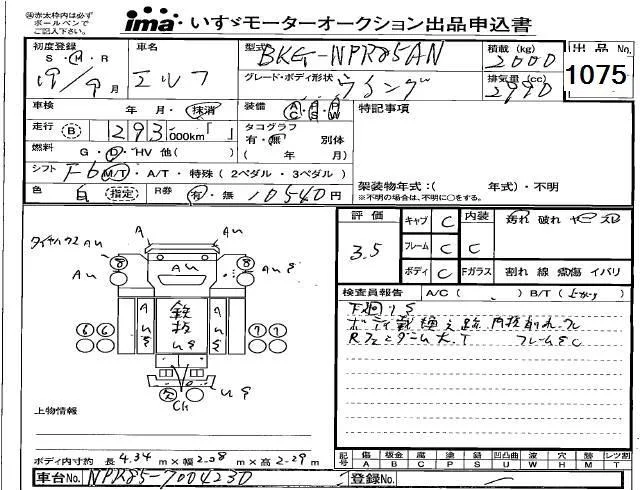 ㊟赤太枠内は必ず
ボールペンで
ご記入下さい。
ima いすゞモーターオークション出品申込書
初度登録
S・H・R
19/9月
車名
エルフ
型式
BKG-NPR85AN
グレード・ボディ形状
ウイング
積載(kg)
2000
排気量(cc)
2990
出品No.
1075
車検 年 月・抹消
装備 AC・PS・PW
特記事項
走行 B 293,000km「 」
タコグラフ
有・無 別体
( 年 月)
燃料 G・D・HV 他( )
シフト F6 M/T・A/T・特殊(2ペダル・3ペダル)
架装物年式:( 年式)・不明
※不明の場合は、不明に○をする。
色 白 指定 R券 有・無 10540円
評価
3.5
キャブ C
フレーム C
ボディ C
内装 C
Fガラス
汚れ 破れ ヤニ スレ
割れ 線 瘢傷 イバリ
検査員報告 A/C( ) B/T( )
下廻りS
ボディ載換え跡
フレームSC
A
AU
AU
AU
鉄板
Ck
上物情報
ボディ内寸約 長4.34m×幅2.08m×高2.29m
記号
傷 板金 腐 塗 錆 凹 凸凹曲 波 穴 跡 レンズ割
A B C P S U W H M T
車台No. NPR85-7004230
登録No.